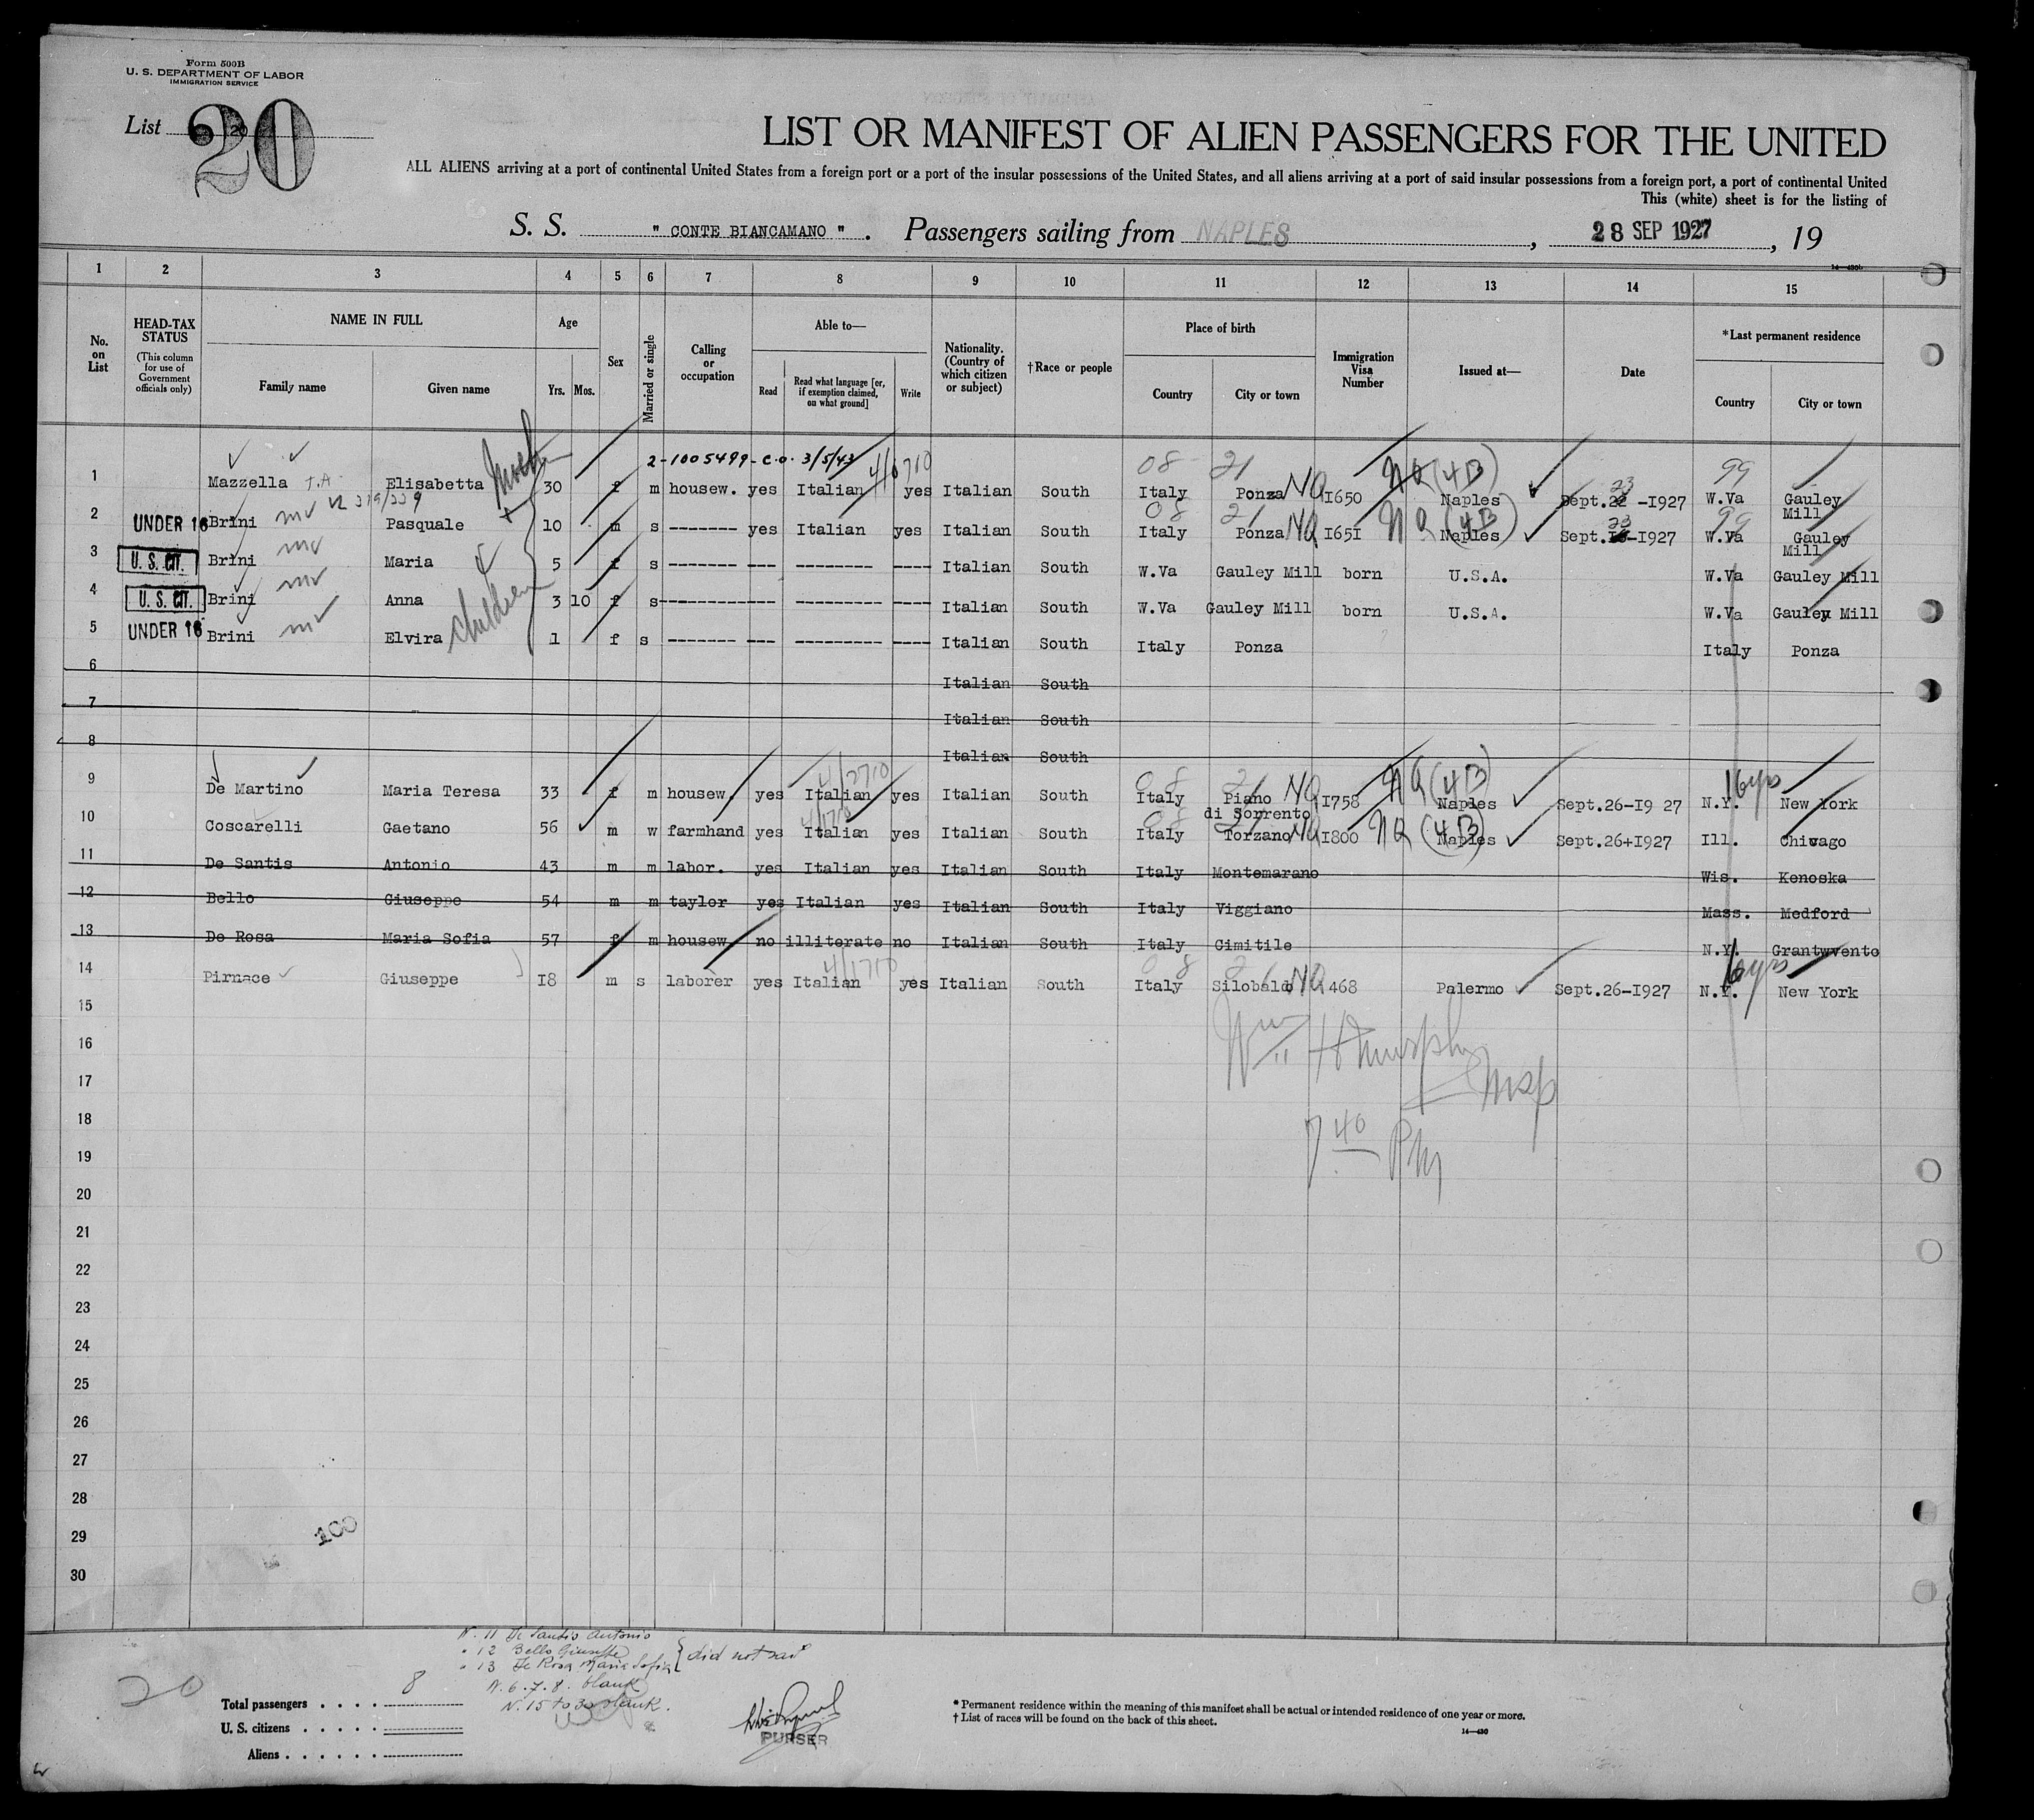 Form 500B
U. S. DEPARTMENT OF LABOR
IMMIGRATION SERVICE
List 20
20
LIST OR MANIFEST OF ALIEN PASSENGERS FOR THE UNITED
ALL ALIENS arriving at a port of continental United States from a foreign port or a port of the insular possessions of the United States, and all aliens arriving at a port of said insular possessions from a foreign port, a port of continental United
This (white) sheet is for the listing of
S. S. " CONTE BIANCAMANO " . Passengers sailing from NAPLES , 28 SEP 1927 , 19
1 2 3 4 5 6 7 8 9 10 11 12 13 14 15
No. on List
HEAD-TAX STATUS (This column for use of Government officials only)
NAME IN FULL
Family name Given name
Age
Yrs. Mos.
Sex
Married or single
Calling or occupation
Able to—
Read Read what language [or, if exemption claimed, on what ground] Write
Nationality. (Country of which citizen or subject)
†Race or people
Place of birth
Country City or town
Immigration Visa Number
Issued at—
Date
*Last permanent residence
Country City or town
2-1005499-C.O. 3/5/43 08 21 NQ (4B) 99
1 Mazzella Elisabetta 30 f m housew. yes Italian yes Italian South Italy Ponza NQ I650 Naples Sept. 23 -I927 W.Va Gauley Mill
08 21 NQ (4B) 99
2 UNDER 16 Brini Pasquale 10 m s ------- yes Italian yes Italian South Italy Ponza NQ I65I Naples Sept. 23-I927 W.Va Gauley Mill
3 U. S. CIT. Brini Maria 5 f s ------- --- -------- ---- Italian South W.Va Gauley Mill born U.S.A. W.Va Gauley Mill
4 U. S. CIT. Brini Anna 3 10 f s ------- --- -------- ---- Italian South W.Va Gauley Mill born U.S.A. W.Va Gauley Mill
children
5 UNDER 16 Brini Elvira 1 f s ------- --- --------- ---- Italian South Italy Ponza Italy Ponza
6 Italian South
7 Italian South
8 Italian South
9 De Martino Maria Teresa 33 f m housew. yes Italian yes Italian South Italy Piano di Sorrento NQ I1758 NQ (4B) Naples Sept.26-I9 27 N.Y. New York
10 Coscarelli Gaetano 56 m w farmhand yes Italian yes Italian South Italy Torzano NQ I800 NQ (4B) Naples Sept.26+I927 Ill. Chicago
11 De Santis Antonio 43 m m labor. yes Italian yes Italian South Italy Montemarano Wis. Kenoska
12 Bello Giuseppe 54 m m taylor yes Italian yes Italian South Italy Viggiano Mass. Medford
13 De Rosa Maria Sofia 57 f m housew no illiterate no Italian South Italy Cimitile N.Y. Grantwvento
14 Pirnace Giuseppe I8 m s laborer yes Italian yes Italian South Italy Silobaldo NQ 468 Palermo Sept.26-I927 N.Y. New York
15
16
17
18
19
20
21
22
23
24
25
26
27
28
29
30
Wm H Murphy
Insp
7 40 PM
100
N. 11 De Santis Antonio
" 12 Bello Giuseppe
" 13 De Rosa Maria Sofia
did not sail
N. 6. 7. 8. blank
N. 15 to 30 blank.
20
Total passengers . . . . 8
U. S. citizens . . . . .
Aliens . . . . . .
PURSER
* Permanent residence within the meaning of this manifest shall be actual or intended residence of one year or more.
† List of races will be found on the back of this sheet.
14—430